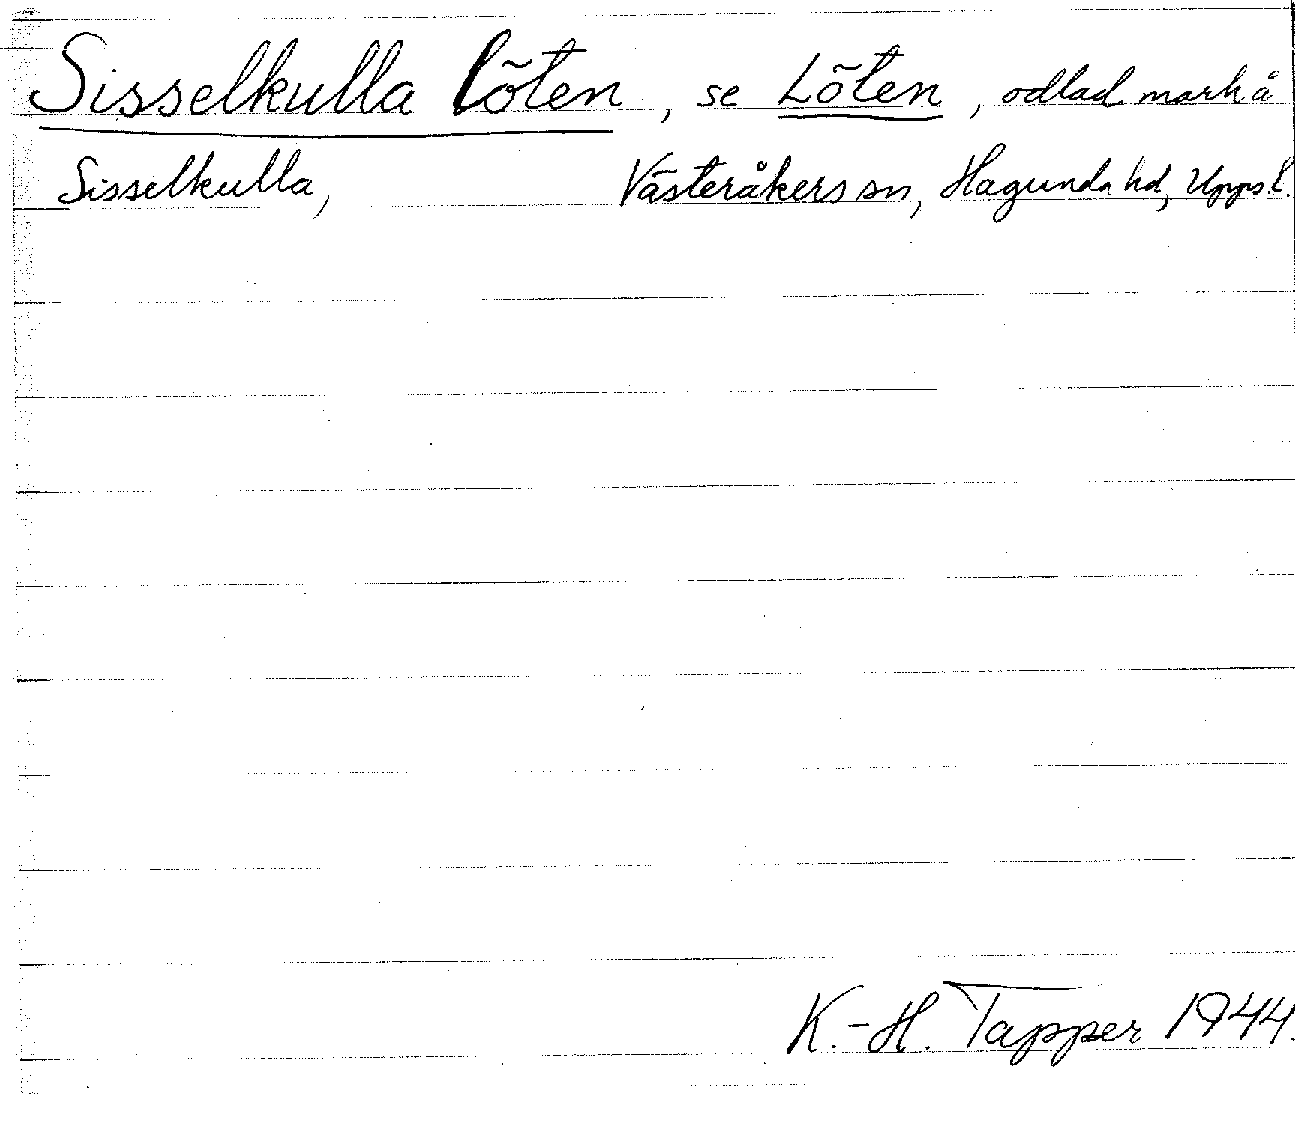 Sisselkulla löten, se Löten, odlad mark å
Sisselkulla, Västeråkers sn, Hagunda hd, Upps l.
K.-H. Tapper 1944.